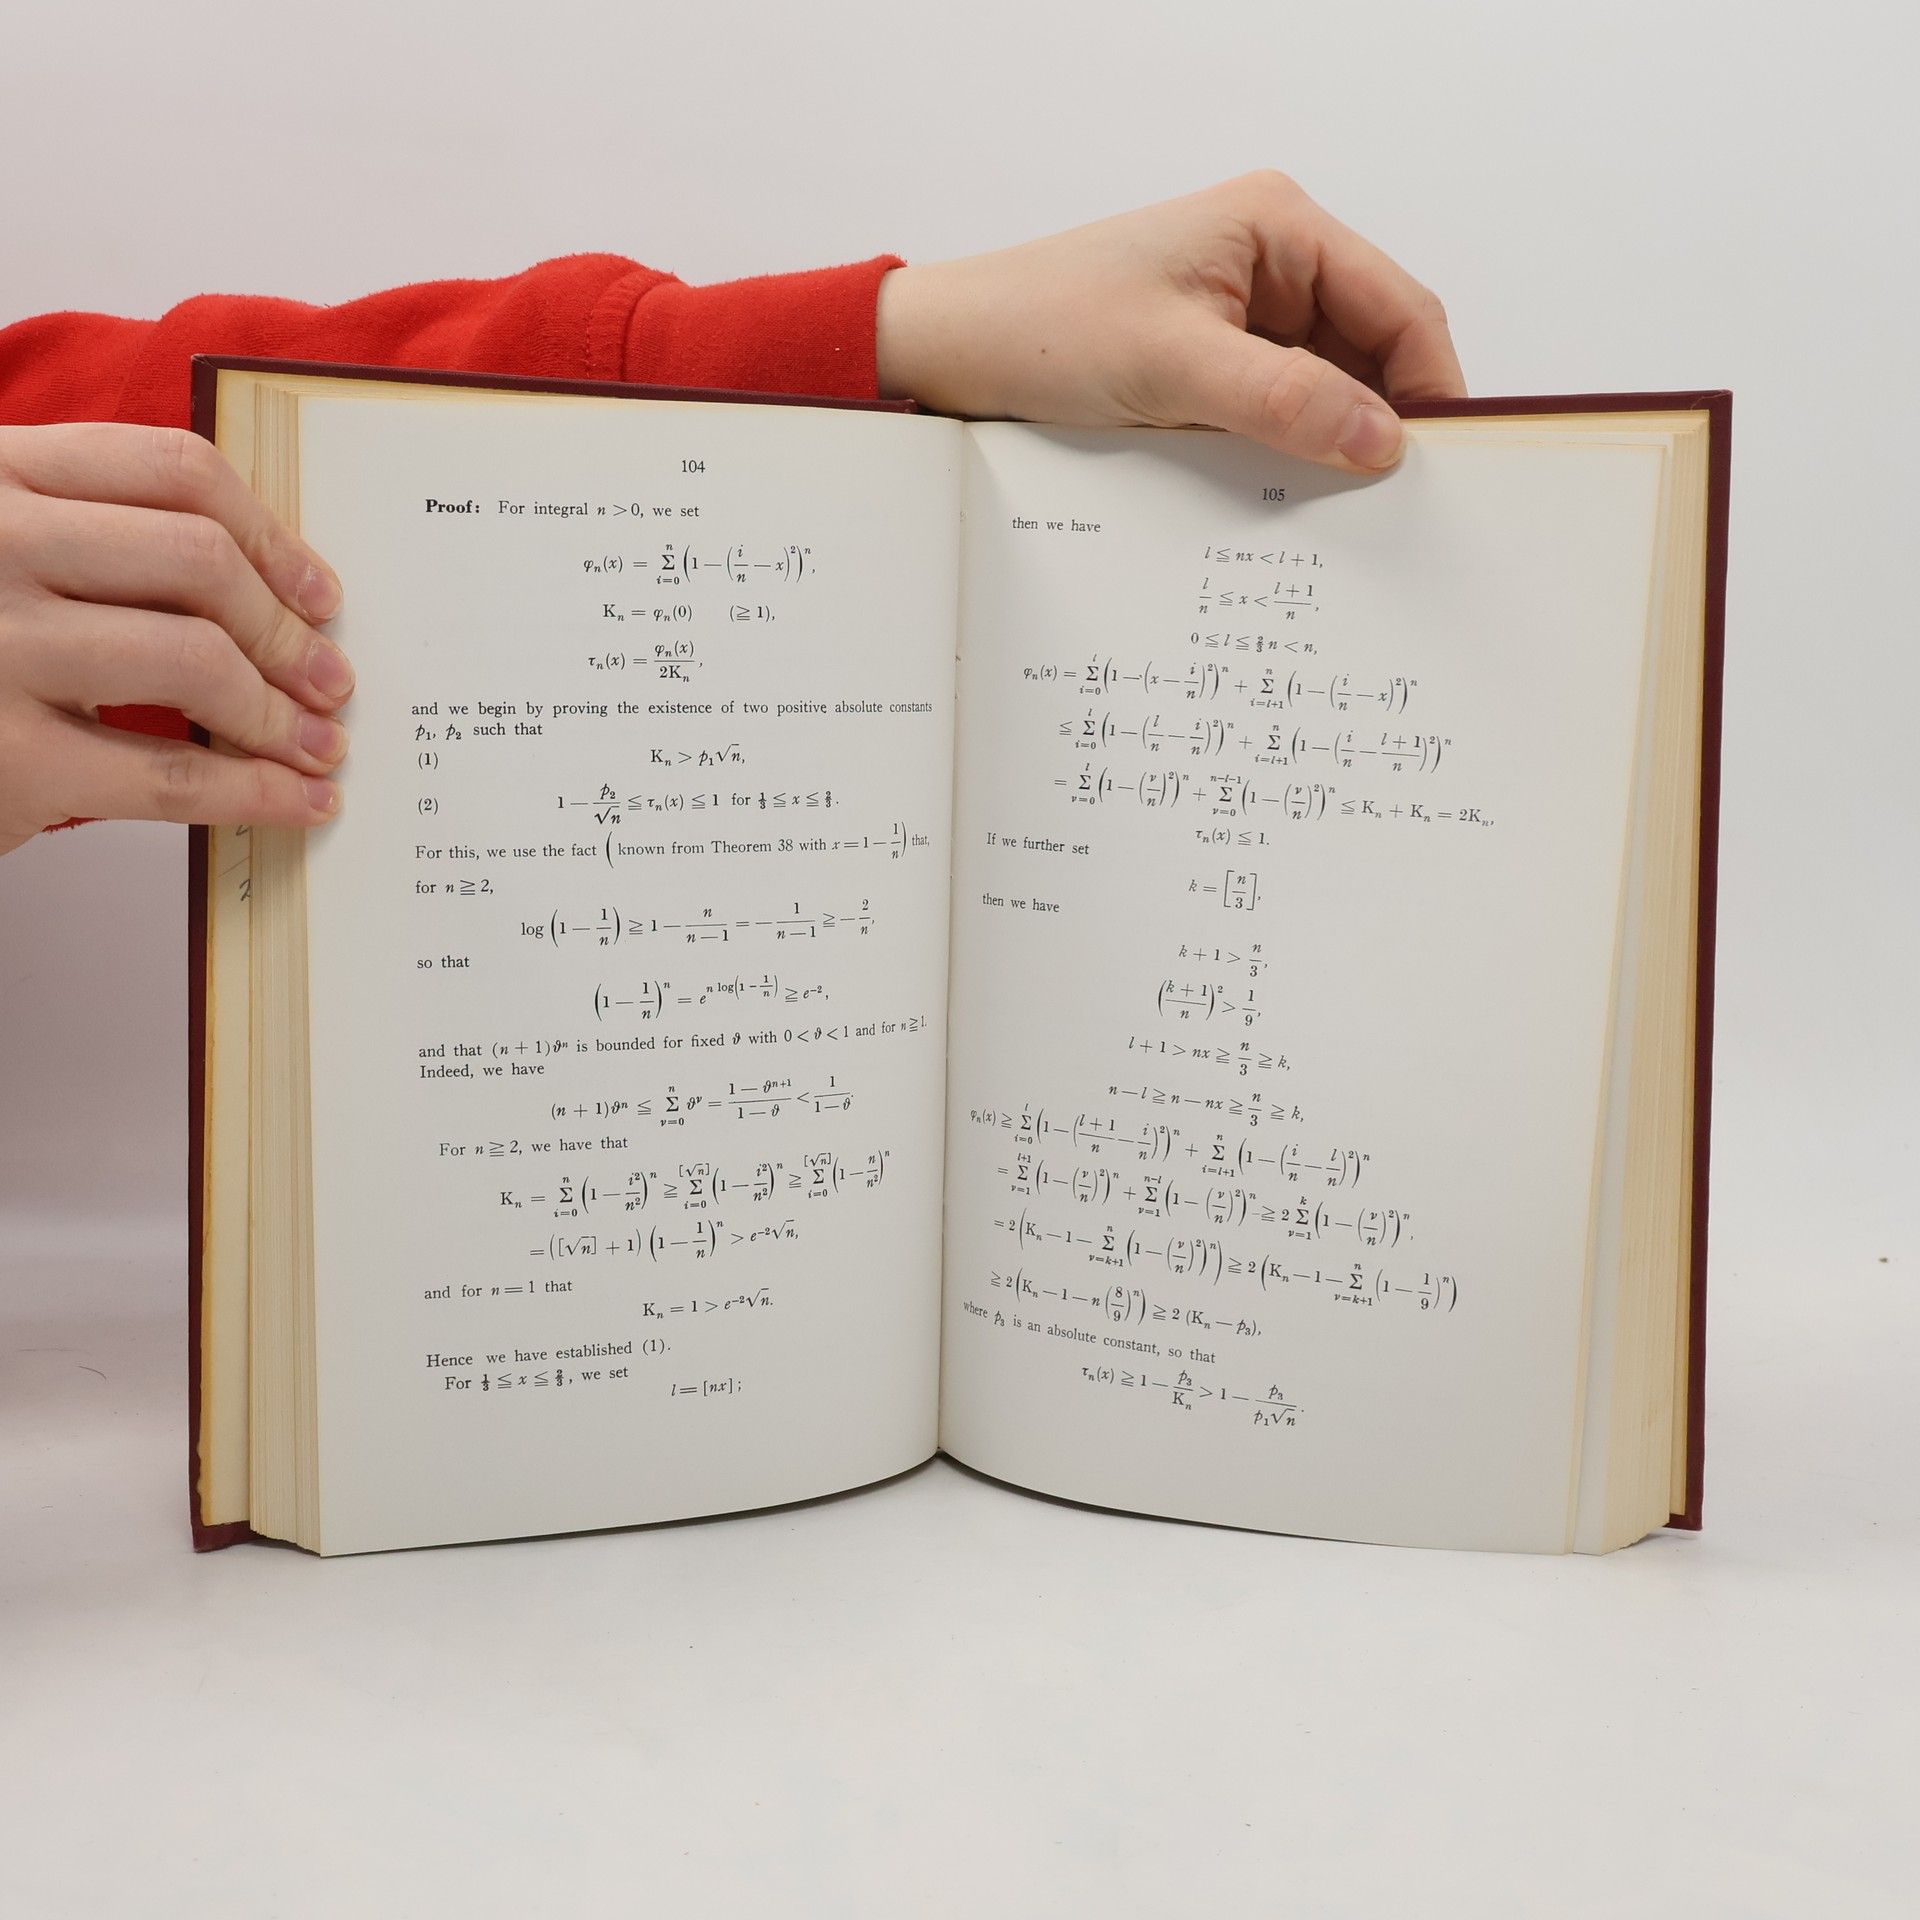 104
Proof: For integral n > 0, we set
φₙ(x) = Σ_{i=0}^{n} (1 — (i/n — x)²)ⁿ,
Kₙ = φₙ(0) (≧ 1),
τₙ(x) = φₙ(x)/2Kₙ,
and we begin by proving the existence of two positive absolute constants
p₁, p₂ such that
(1) Kₙ > p₁√n,
(2) 1 — p₂/√n ≦ τₙ(x) ≦ 1 for ⅓ ≦ x ≦ ⅔.
For this, we use the fact (known from Theorem 38 with x = 1 — 1/n) that,
for n ≧ 2,
log (1 — 1/n) ≧ 1 — n/(n — 1) = — 1/(n — 1) ≧ — 2/n,
so that
(1 — 1/n)ⁿ = e^{n log(1 — 1/n)} ≧ e⁻²,
and that (n + 1)ϑⁿ is bounded for fixed ϑ with 0 < ϑ < 1 and for n ≧ 1.
Indeed, we have
(n + 1)ϑⁿ ≦ Σ_{ν=0}^{n} ϑ^ν = (1 — ϑⁿ⁺¹)/(1 — ϑ) < 1/(1 — ϑ).
For n ≧ 2, we have that
Kₙ = Σ_{i=0}^{n} (1 — i²/n²)ⁿ ≧ Σ_{i=0}^{[√n]} (1 — i²/n²)ⁿ ≧ Σ_{i=0}^{[√n]} (1 — n/n²)ⁿ
= ([√n] + 1) (1 — 1/n)ⁿ > e⁻²√n,
and for n = 1 that
Kₙ = 1 > e⁻²√n.
Hence we have established (1).
For ⅓ ≦ x ≦ ⅔, we set
l = [nx];
105
then we have
l ≦ nx < l + 1,
l/n ≦ x < (l + 1)/n,
0 ≦ l ≦ ⅔ n < n,
φₙ(x) = Σ_{i=0}^{l} (1 — (x — i/n)²)ⁿ + Σ_{i=l+1}^{n} (1 — (i/n — x)²)ⁿ
≦ Σ_{i=0}^{l} (1 — (l/n — i/n)²)ⁿ + Σ_{i=l+1}^{n} (1 — (i/n — (l + 1)/n)²)ⁿ
= Σ_{ν=0}^{l} (1 — (ν/n)²)ⁿ + Σ_{ν=0}^{n-l-1} (1 — (ν/n)²)ⁿ ≦ Kₙ + Kₙ = 2Kₙ,
τₙ(x) ≦ 1.
If we further set
k = [n/3],
then we have
k + 1 > n/3,
((k + 1)/n)² > 1/9,
l + 1 > nx ≧ n/3 ≧ k,
n — l ≧ n — nx ≧ n/3 ≧ k,
φₙ(x) ≧ Σ_{i=0}^{l} (1 — ((l + 1)/n — i/n)²)ⁿ + Σ_{i=l+1}^{n} (1 — (i/n — l/n)²)ⁿ
= Σ_{ν=1}^{l+1} (1 — (ν/n)²)ⁿ + Σ_{ν=1}^{n-l} (1 — (ν/n)²)ⁿ ≧ 2 Σ_{ν=1}^{k} (1 — (ν/n)²)ⁿ,
= 2 (Kₙ — 1 — Σ_{ν=k+1}^{n} (1 — (ν/n)²)ⁿ) ≧ 2 (Kₙ — 1 — Σ_{ν=k+1}^{n} (1 — 1/9)ⁿ)
≧ 2 (Kₙ — 1 — n (8/9)ⁿ) ≧ 2 (Kₙ — p₃),
where p₃ is an absolute constant, so that
τₙ(x) ≧ 1 — p₃/Kₙ > 1 — p₃/(p₁√n).